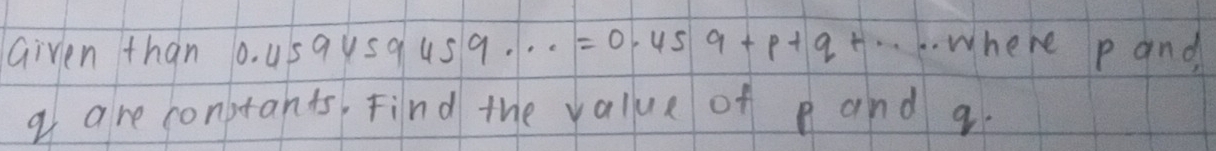 Given than 0.459459459... = 0.459 + p + q + ..... where p and,
q are constants. Find the value of p and q.